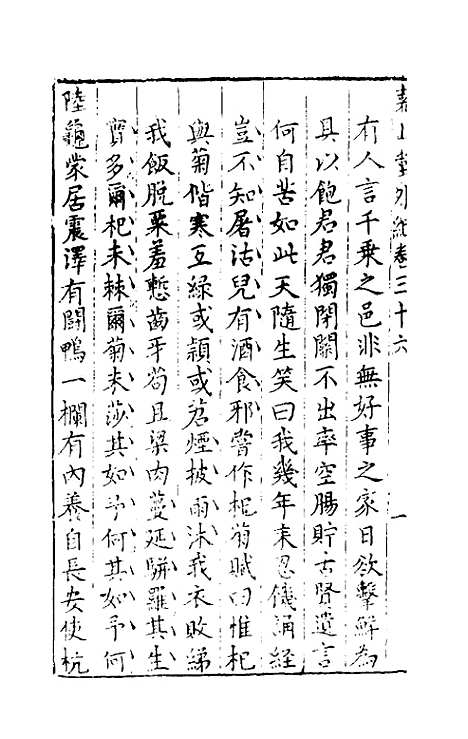 堯山堂外紀卷三十六 一
有人言千乗之邑非無好事之家日欲擊鮮為
具以飽君君獨閉關不出率空腸貯古賢遺言
何自苦如此天隨生笑曰我幾年来忍饑誦經
豈不知屠沽兒有酒食邪嘗作杞菊賦曰惟杞
與菊偕寒互緑或頴或苕煙披雨沐我衣敗綈
我飯脫粟羞慙齒牙苟且梁肉蔓延駢羅其生
實多爾杞未棘爾菊未莎其如予何其如予何
陸龜蒙居震澤有鬪鴨一欄有內養自長安使杭